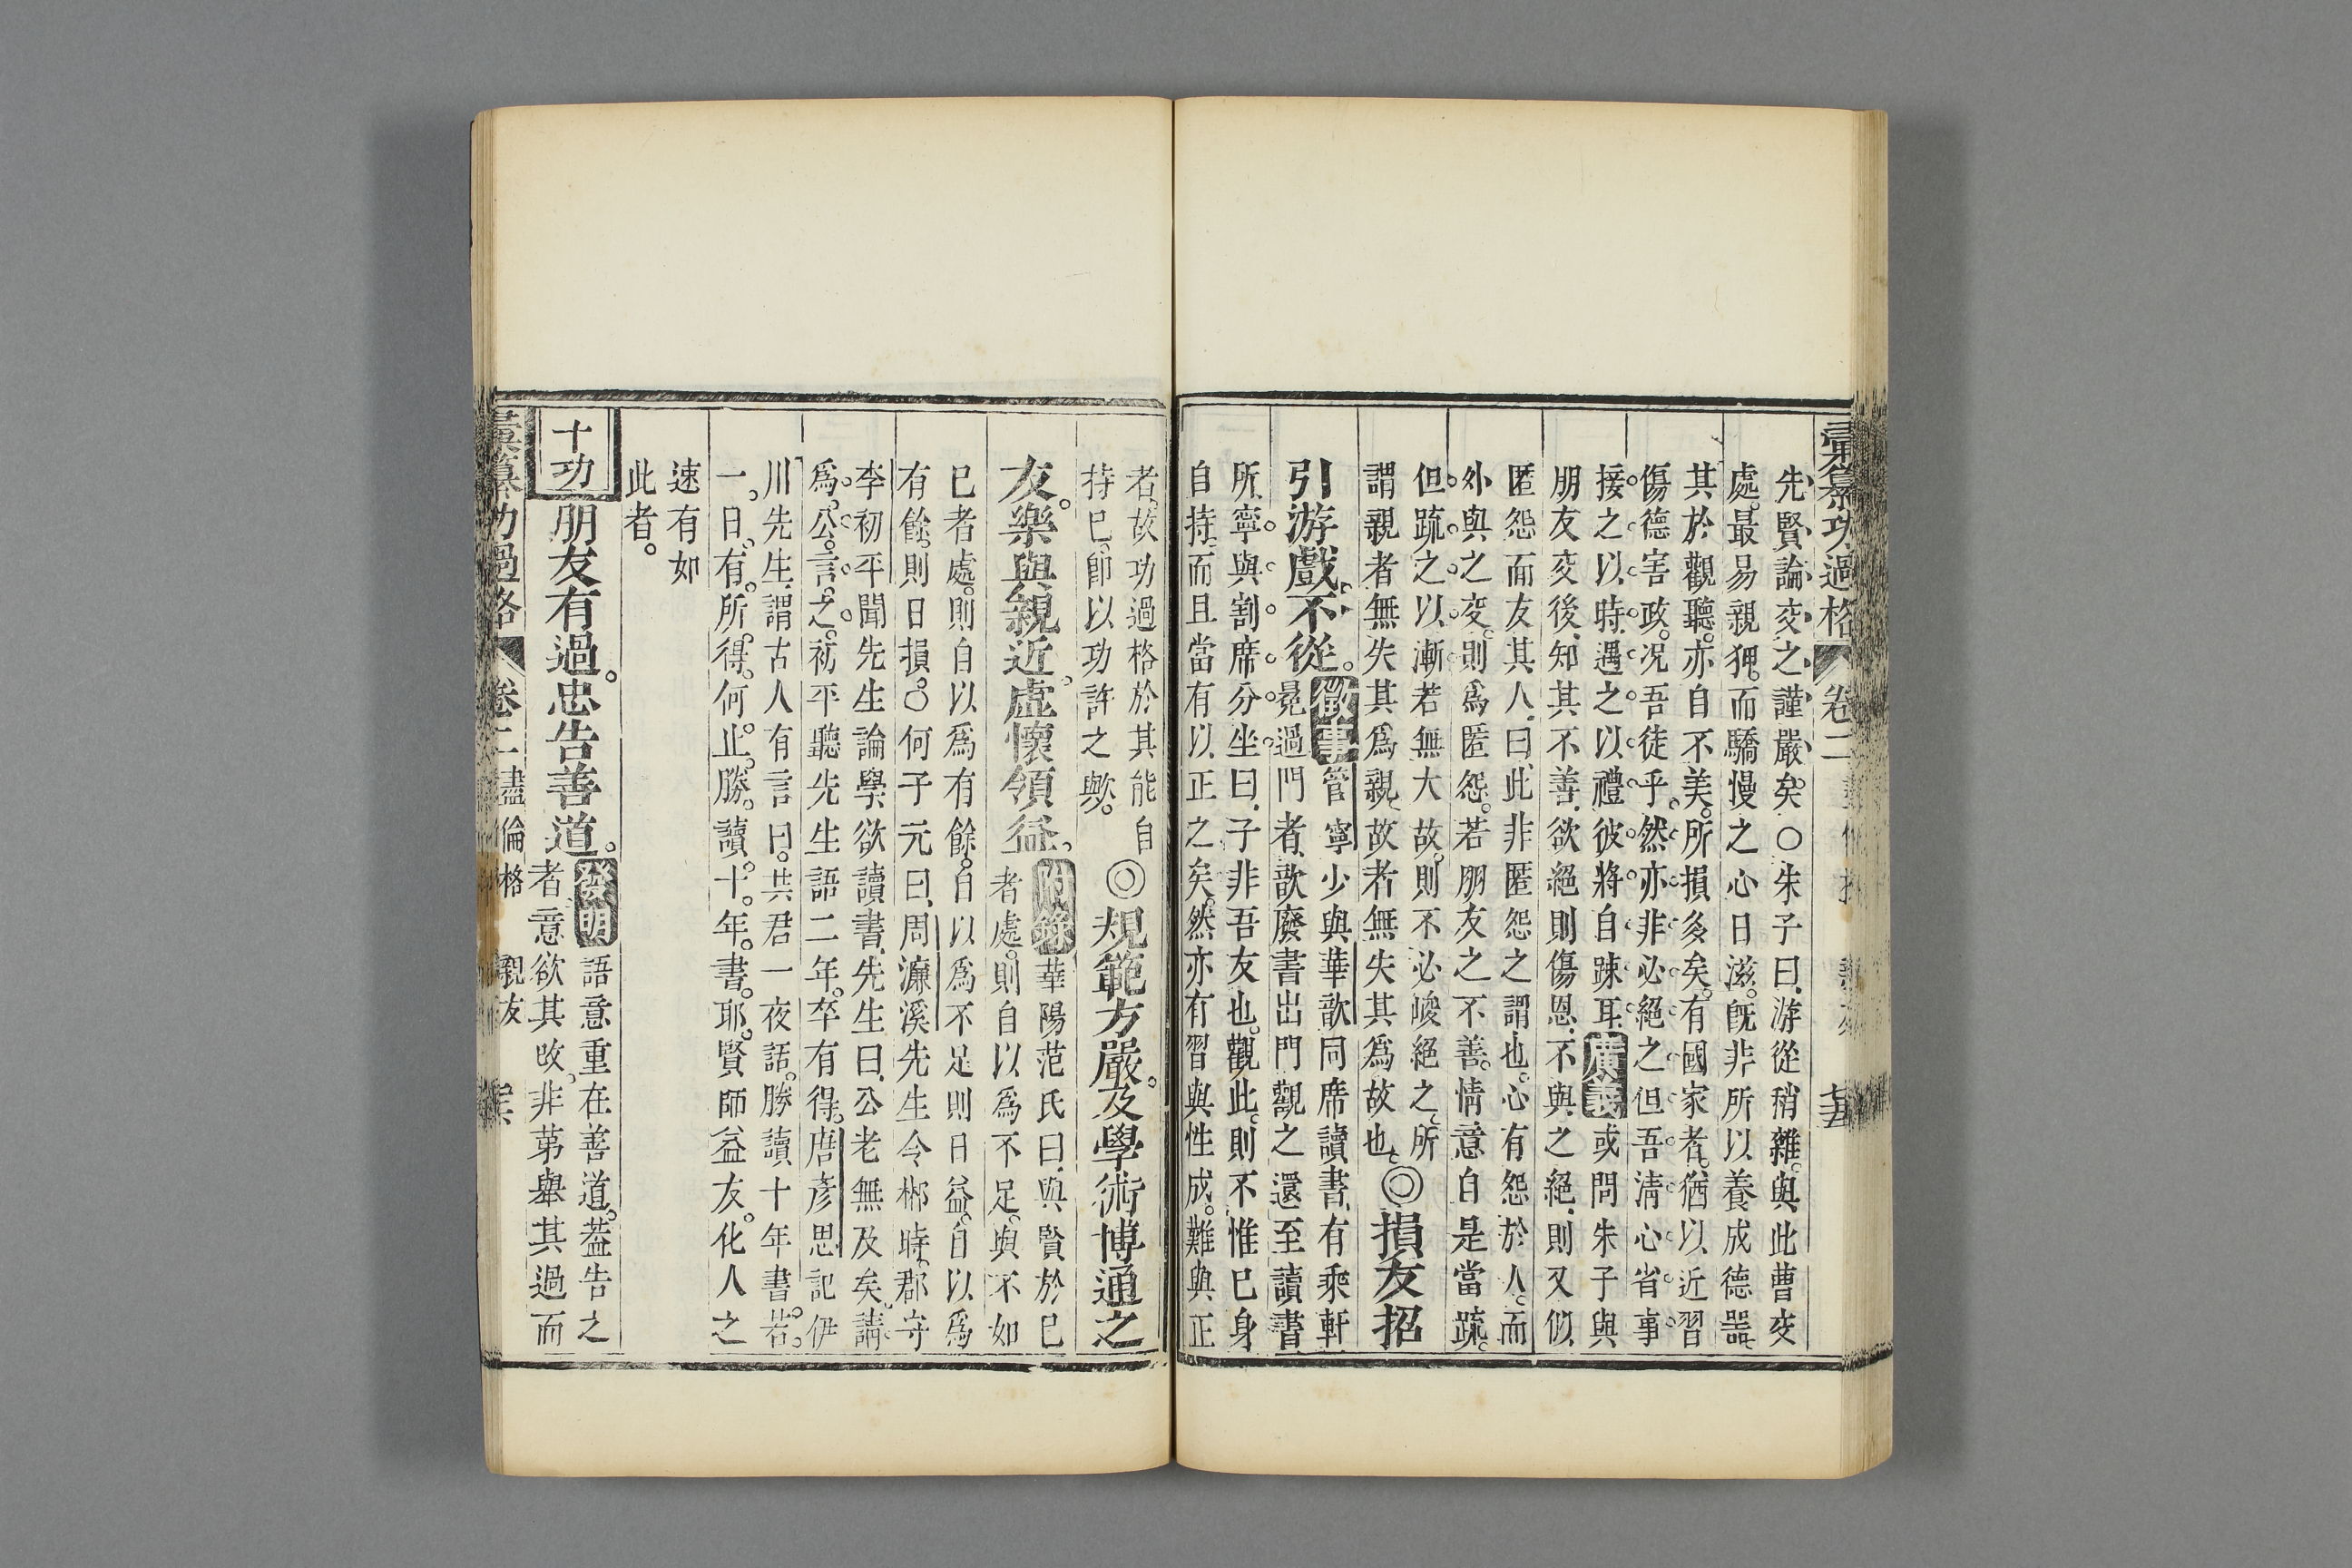 彙纂功過格 卷二
先賢論交之謹嚴矣。○朱子曰、游從稍雜。與此曹交
處。最易親狎。而驕慢之心日滋。旣非所以養成德器。
其於觀聽。亦自不美。所損多矣。有國家者。猶以近習
傷德害政。况吾徒乎。然亦非必絕之但吾淸心省事
接之以時。遇之以禮。彼將自踈耳、廣義或問朱子與
朋友交後、知其不善、欲絕則傷恩、不與之絕、則又似
匿怨而友其人、曰、此非匿怨之謂也。心有怨於人。而
外與之交。則爲匿怨。若朋友之不善。情意自是當疏。
但疏之以漸若無大故。則不必峻絕之、所
謂親者無失其爲親、故者無失其爲故也、◎損友招
引游戲。不從。徵事管寧少與華歆同席讀書、有乘軒
冕過門者、歆廢書出門觀之還至讀書
所、寧與割席分坐曰、子非吾友也。觀此。則不惟已身
自持、而且當有以正之矣。然亦有習與性成。難與正
者。故功過格於其能自
持已。卽以功許之歟。◎規範方嚴。及學術博通之
友。樂與親近。虛懷領益。附錄華陽范氏曰、與賢於已
者處。則自以爲不足。與不如
已者處。則自以爲有餘。自以爲不足則日益。自以爲
有餘。則日損。○何子元曰、周濂溪先生令郴時。郡守
李初平聞先生論學欲讀書、先生曰、公老無及矣、請
爲。公。言。之。初平聽先生語二年。卒有得。唐彥思記伊
川先生、謂古人有言曰。共君一夜話。勝讀十年書。若。
一。日。有。所。得。何。止。勝。讀。十。年。書。耶。賢師益友。化人之
速有如
此者。
十功 朋友有過。忠告善道。發明語意重在善道。葢告之
者、意欲其改。非苐舉其過而
彙纂功過格 卷二 盡倫格 親友